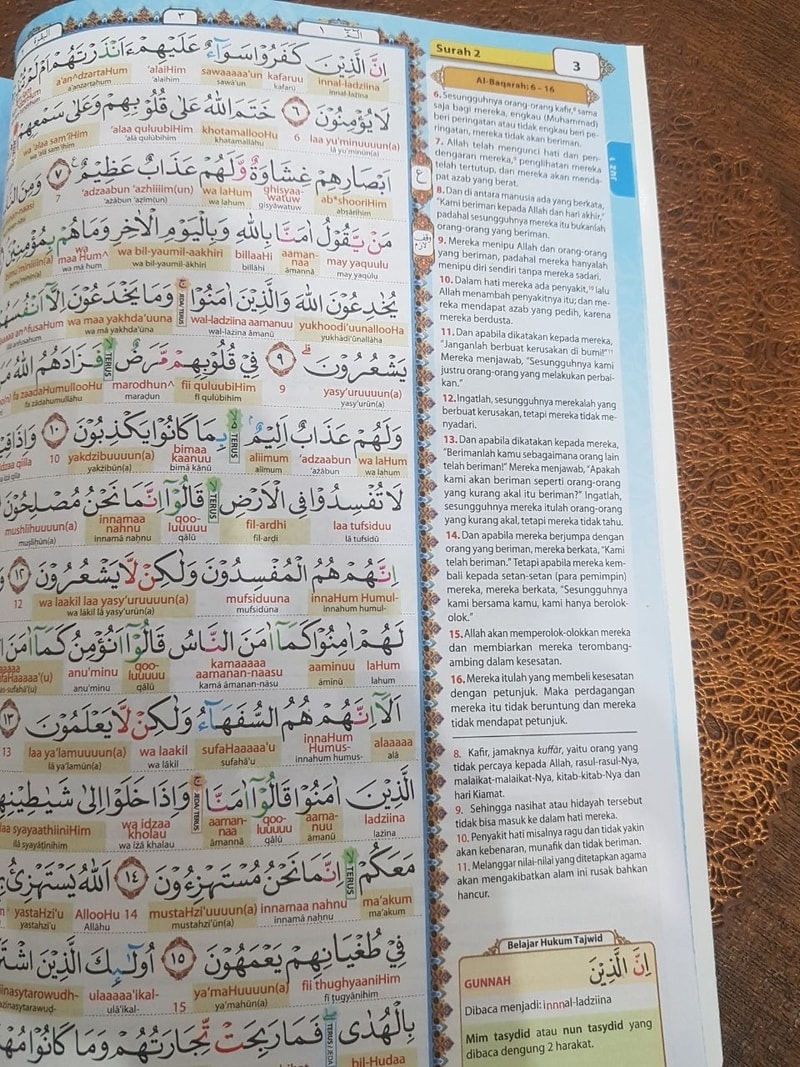 ٣
Surah 2
3
Al-Baqarah: 6 – 16
اِنَّ الَّذِيْنَ كَفَرُوْا سَوَاۤءٌ عَلَيْهِمْ ءَاَنْذَرْتَهُمْ اَمْ لَمْ
innal-ladziina kafaruu sawaaaaa'un 'alaiHim a'an^dzartaHum
innal-lażīna kafarū sawā'un 'alaihim a'anżartahum
لَا يُؤْمِنُوْنَ ٦ خَتَمَ اللّٰهُ عَلٰى قُلُوْبِهِمْ وَعَلٰى سَمْعِهِمْ
laa yu'minuuuun(a) 6 khotamallooHu 'alaa quluubiHim wa 'alaa sam'iHim
lā yu'minūn(a) khatamallāhu 'alā qulūbihim wa 'alā sam'ihim
اَبْصَارِهِمْ غِشَاوَةٌ وَّلَهُمْ عَذَابٌ عَظِيْمٌ ٧ وَمِنَ
ab*shooriHim ghisyaa-watuw wa laHum 'adzaabun 'azhiiiim(un) 7
abṣārihim gisyāwatuw wa lahum 'ażābun 'aẓīm(un)
مَنْ يَّقُوْلُ اٰمَنَّا بِاللّٰهِ وَبِالْيَوْمِ الْاٰخِرِ وَمَا هُمْ بِمُؤْمِنِيْنَ
may yaquulu aaman-naa billaaHi wa bil-yaumil-aakhiri wa maa Hum^
may yaqūlu āmannā billāhi wa bil-yaumil-ākhiri wa mā hum
يُخٰدِعُوْنَ اللّٰهَ وَالَّذِيْنَ اٰمَنُوْا وَمَا يَخْدَعُوْنَ اِلَّآ اَنْفُسَهُمْ
yukhoodi'uunallooHa wal-ladziina aamanuu wa maa yakhda'uuna
yukhādi'ūnallāha wal-lażīna āmanū wa mā yakhda'ūna
يَشْعُرُوْنَ ٩ فِيْ قُلُوْبِهِمْ مَّرَضٌ فَزَادَهُمُ اللّٰهُ
yasy'uruuuun(a) 9 fii quluubiHim marodhun^ fa zaadaHumullooHu
yasy'urūn(a) fī qulūbihim maraḍun fa zādahumullāhu
وَلَهُمْ عَذَابٌ اَلِيْمٌ بِمَا كَانُوْا يَكْذِبُوْنَ ١٠ وَاِذَا قِيْلَ
wa laHum 'adzaabun aliimum bimaa kaanuu yakdzibuuuun(a) 10
wa lahum 'ażābun alīmum bimā kānū yakżibūn(a)
لَا تُفْسِدُوْا فِى الْاَرْضِ قَالُوْٓا اِنَّمَا نَحْنُ مُصْلِحُوْنَ
laa tufsiduu fil-ardhi qoo-luuuuu innamaa nahnu mushlihuuuun(a)
lā tufsidū fil-arḍi qālū innamā naḥnu muṣliḥūn(a)
اِنَّهُمْ هُمُ الْمُفْسِدُوْنَ وَلٰكِنْ لَّا يَشْعُرُوْنَ ١٢
innaHum Humul- mufsiduuna wa laakil laa yasy'uruuuun(a) 12
innahum humul- mufsidūna wa lākil lā yasy'urūn(a)
لَهُمْ اٰمِنُوْا كَمَآ اٰمَنَ النَّاسُ قَالُوْٓا اَنُؤْمِنُ كَمَآ اٰمَنَ
laHum aaminuu kamaaaaa aamanan-naasu qoo-luuuuu anu'minu
lahum āminū kamā āmanan-nāsu qālū anu'minu
اَلَآ اِنَّهُمْ هُمُ السُّفَهَاۤءُ وَلٰكِنْ لَّا يَعْلَمُوْنَ ١٣
alaaaaa innaHum Humus- sufaHaaaaa'u wa laakil laa ya'lamuuuun(a) 13
alā innahum humus- sufahā'u wa lākil lā ya'lamūn(a)
الَّذِيْنَ اٰمَنُوْا قَالُوْٓا اٰمَنَّا وَاِذَا خَلَوْا اِلٰى شَيٰطِيْنِهِمْ
ladziina aama-nuu qoo-luuuuu aaman-naa wa idzaa kholau syayaathiiniHim
lażīna āmanū qālū āmannā wa iżā khalau ilā syayāṭīnihim
مَعَكُمْ اِنَّمَا نَحْنُ مُسْتَهْزِءُوْنَ ١٤ اَللّٰهُ يَسْتَهْزِئُ
ma'akum innamaa nahnu mustaHzi'uuuun(a) 14 AllooHu yastaHzi'u
ma'akum innamā naḥnu mustahzi'ūn(a) Allāhu yastahzi'u
فِيْ طُغْيَانِهِمْ يَعْمَهُوْنَ ١٥ اُولٰۤىِٕكَ الَّذِيْنَ
fii thughyaaniHim ya'maHuuuun(a) 15 ulaaaaa'ikal-
fī ṭugyānihim ya'mahūn(a) ulā'ikal-
بِالْهُدٰى فَمَا رَبِحَتْ تِّجَارَتُهُمْ وَمَا كَانُوْا
bil-Hudaa
6. Sesungguhnya orang-orang kafir,⁸ sama
saja bagi mereka, engkau (Muhammad)
beri peringatan atau tidak engkau beri pe-
ringatan, mereka tidak akan beriman.
7. Allah telah mengunci hati dan pen-
dengaran mereka,⁹ penglihatan mereka
telah tertutup, dan mereka akan menda-
pat azab yang berat.
8. Dan di antara manusia ada yang berkata,
"Kami beriman kepada Allah dan hari akhir,"
padahal sesungguhnya mereka itu bukanlah
orang-orang yang beriman.
9. Mereka menipu Allah dan orang-orang
yang beriman, padahal mereka hanyalah
menipu diri sendiri tanpa mereka sadari.
10. Dalam hati mereka ada penyakit,¹⁰ lalu
Allah menambah penyakitnya itu; dan me-
reka mendapat azab yang pedih, karena
mereka berdusta.
11. Dan apabila dikatakan kepada mereka,
"Janganlah berbuat kerusakan di bumi!"¹¹
Mereka menjawab, "Sesungguhnya kami
justru orang-orang yang melakukan perbai-
kan."
12. Ingatlah, sesungguhnya merekalah yang
berbuat kerusakan, tetapi mereka tidak me-
nyadari.
13. Dan apabila dikatakan kepada mereka,
"Berimanlah kamu sebagaimana orang lain
telah beriman!" Mereka menjawab, "Apakah
kami akan beriman seperti orang-orang
yang kurang akal itu beriman?" Ingatlah,
sesungguhnya mereka itulah orang-orang
yang kurang akal, tetapi mereka tidak tahu.
14. Dan apabila mereka berjumpa dengan
orang yang beriman, mereka berkata, "Kami
telah beriman." Tetapi apabila mereka kem-
bali kepada setan-setan (para pemimpin)
mereka, mereka berkata, "Sesungguhnya
kami bersama kamu, kami hanya berolok-
olok."
15. Allah akan memperolok-olokkan mereka
dan membiarkan mereka terombang-
ambing dalam kesesatan.
16. Mereka itulah yang membeli kesesatan
dengan petunjuk. Maka perdagangan
mereka itu tidak beruntung dan mereka
tidak mendapat petunjuk.
8. Kafir, jamaknya kuffār, yaitu orang yang
tidak percaya kepada Allah, rasul-rasul-Nya,
malaikat-malaikat-Nya, kitab-kitab-Nya dan
hari Kiamat.
9. Sehingga nasihat atau hidayah tersebut
tidak bisa masuk ke dalam hati mereka.
10. Penyakit hati misalnya ragu dan tidak yakin
akan kebenaran, munafik dan tidak beriman.
11. Melanggar nilai-nilai yang ditetapkan agama
akan mengakibatkan alam ini rusak bahkan
hancur.
Belajar Hukum Tajwid
GUNNAH
اِنَّ الَّذِيْنَ
Dibaca menjadi: innnal-ladziina
Mim tasydid atau nun tasydid yang
dibaca dengung 2 harakat.